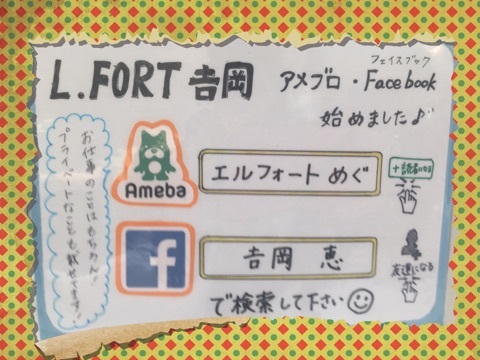 L.FORT 𠮷岡
フェイスブック
アメブロ・Facebook
始めました♪
お仕事のことはもちろん!
プライベートなことも載せてます。
Ameba
エルフォート めぐ
+読者になる
f
𠮷岡 恵
友達になる
で検索して下さい☺